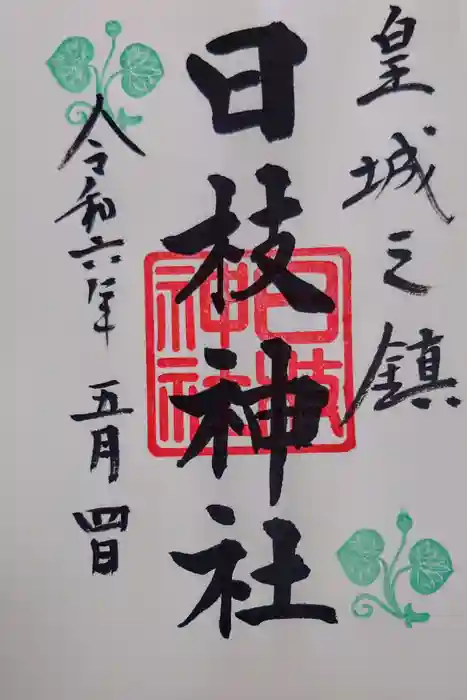 皇城之鎮
日枝神社
日枝神社
令和六年 五月 四日